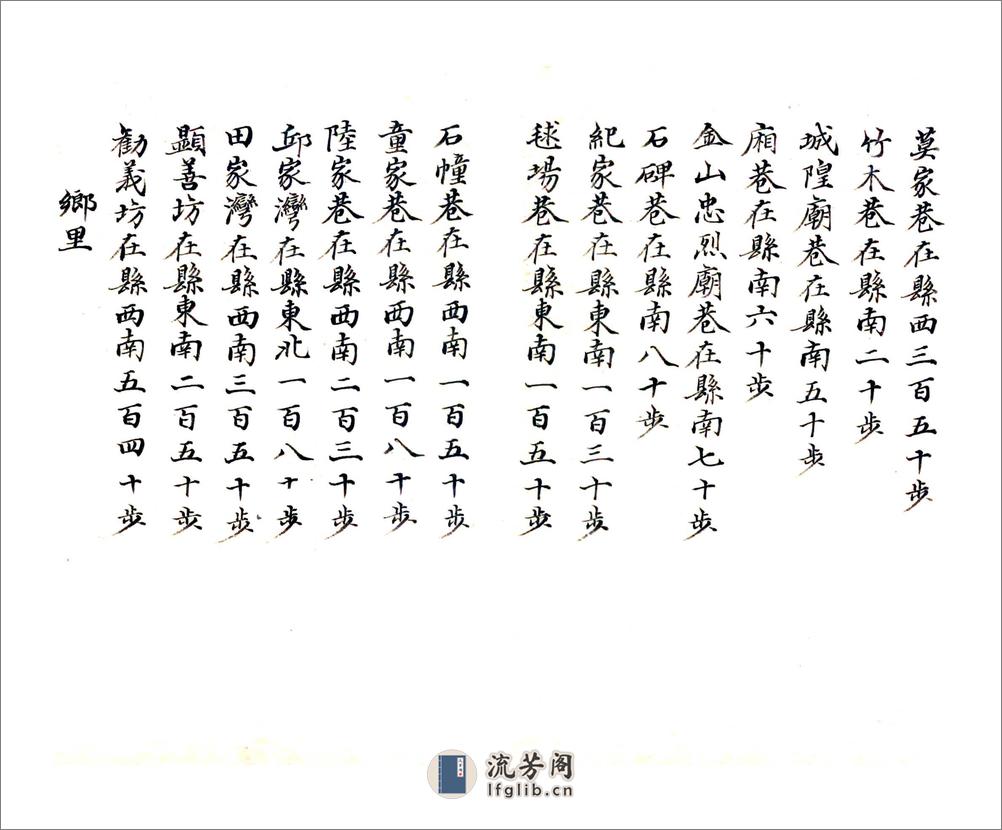 莫家巷在縣西三百五十步
竹木巷在縣南二十步
城隍廟巷在縣南五十步
廂巷在縣南六十步
金山忠烈廟巷在縣南七十步
石碑巷在縣南八十步
紀家巷在縣東南一百三十步
毬場巷在縣東南一百五十步
石幢巷在縣西南一百五十步
童家巷在縣西南一百八十步
陸家巷在縣西南二百三十步
邱家灣在縣東北一百八十步
田家灣在縣西南三百五十步
顯善坊在縣東南二百五十步
勸義坊在縣西南五百四十步
鄉里
流芳阁
lfglib.cn